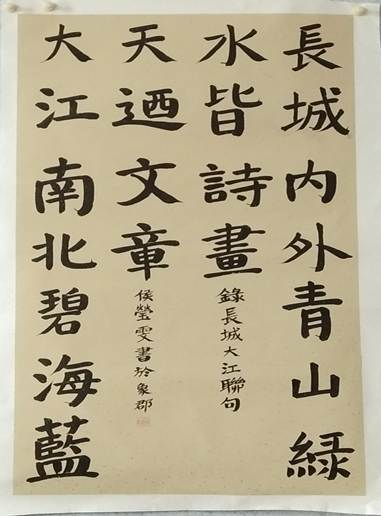 長城內外青山綠
水皆詩畫
大江南北碧海藍
天迺文章
錄長城大江聯句
侯瑩雯書於象郡